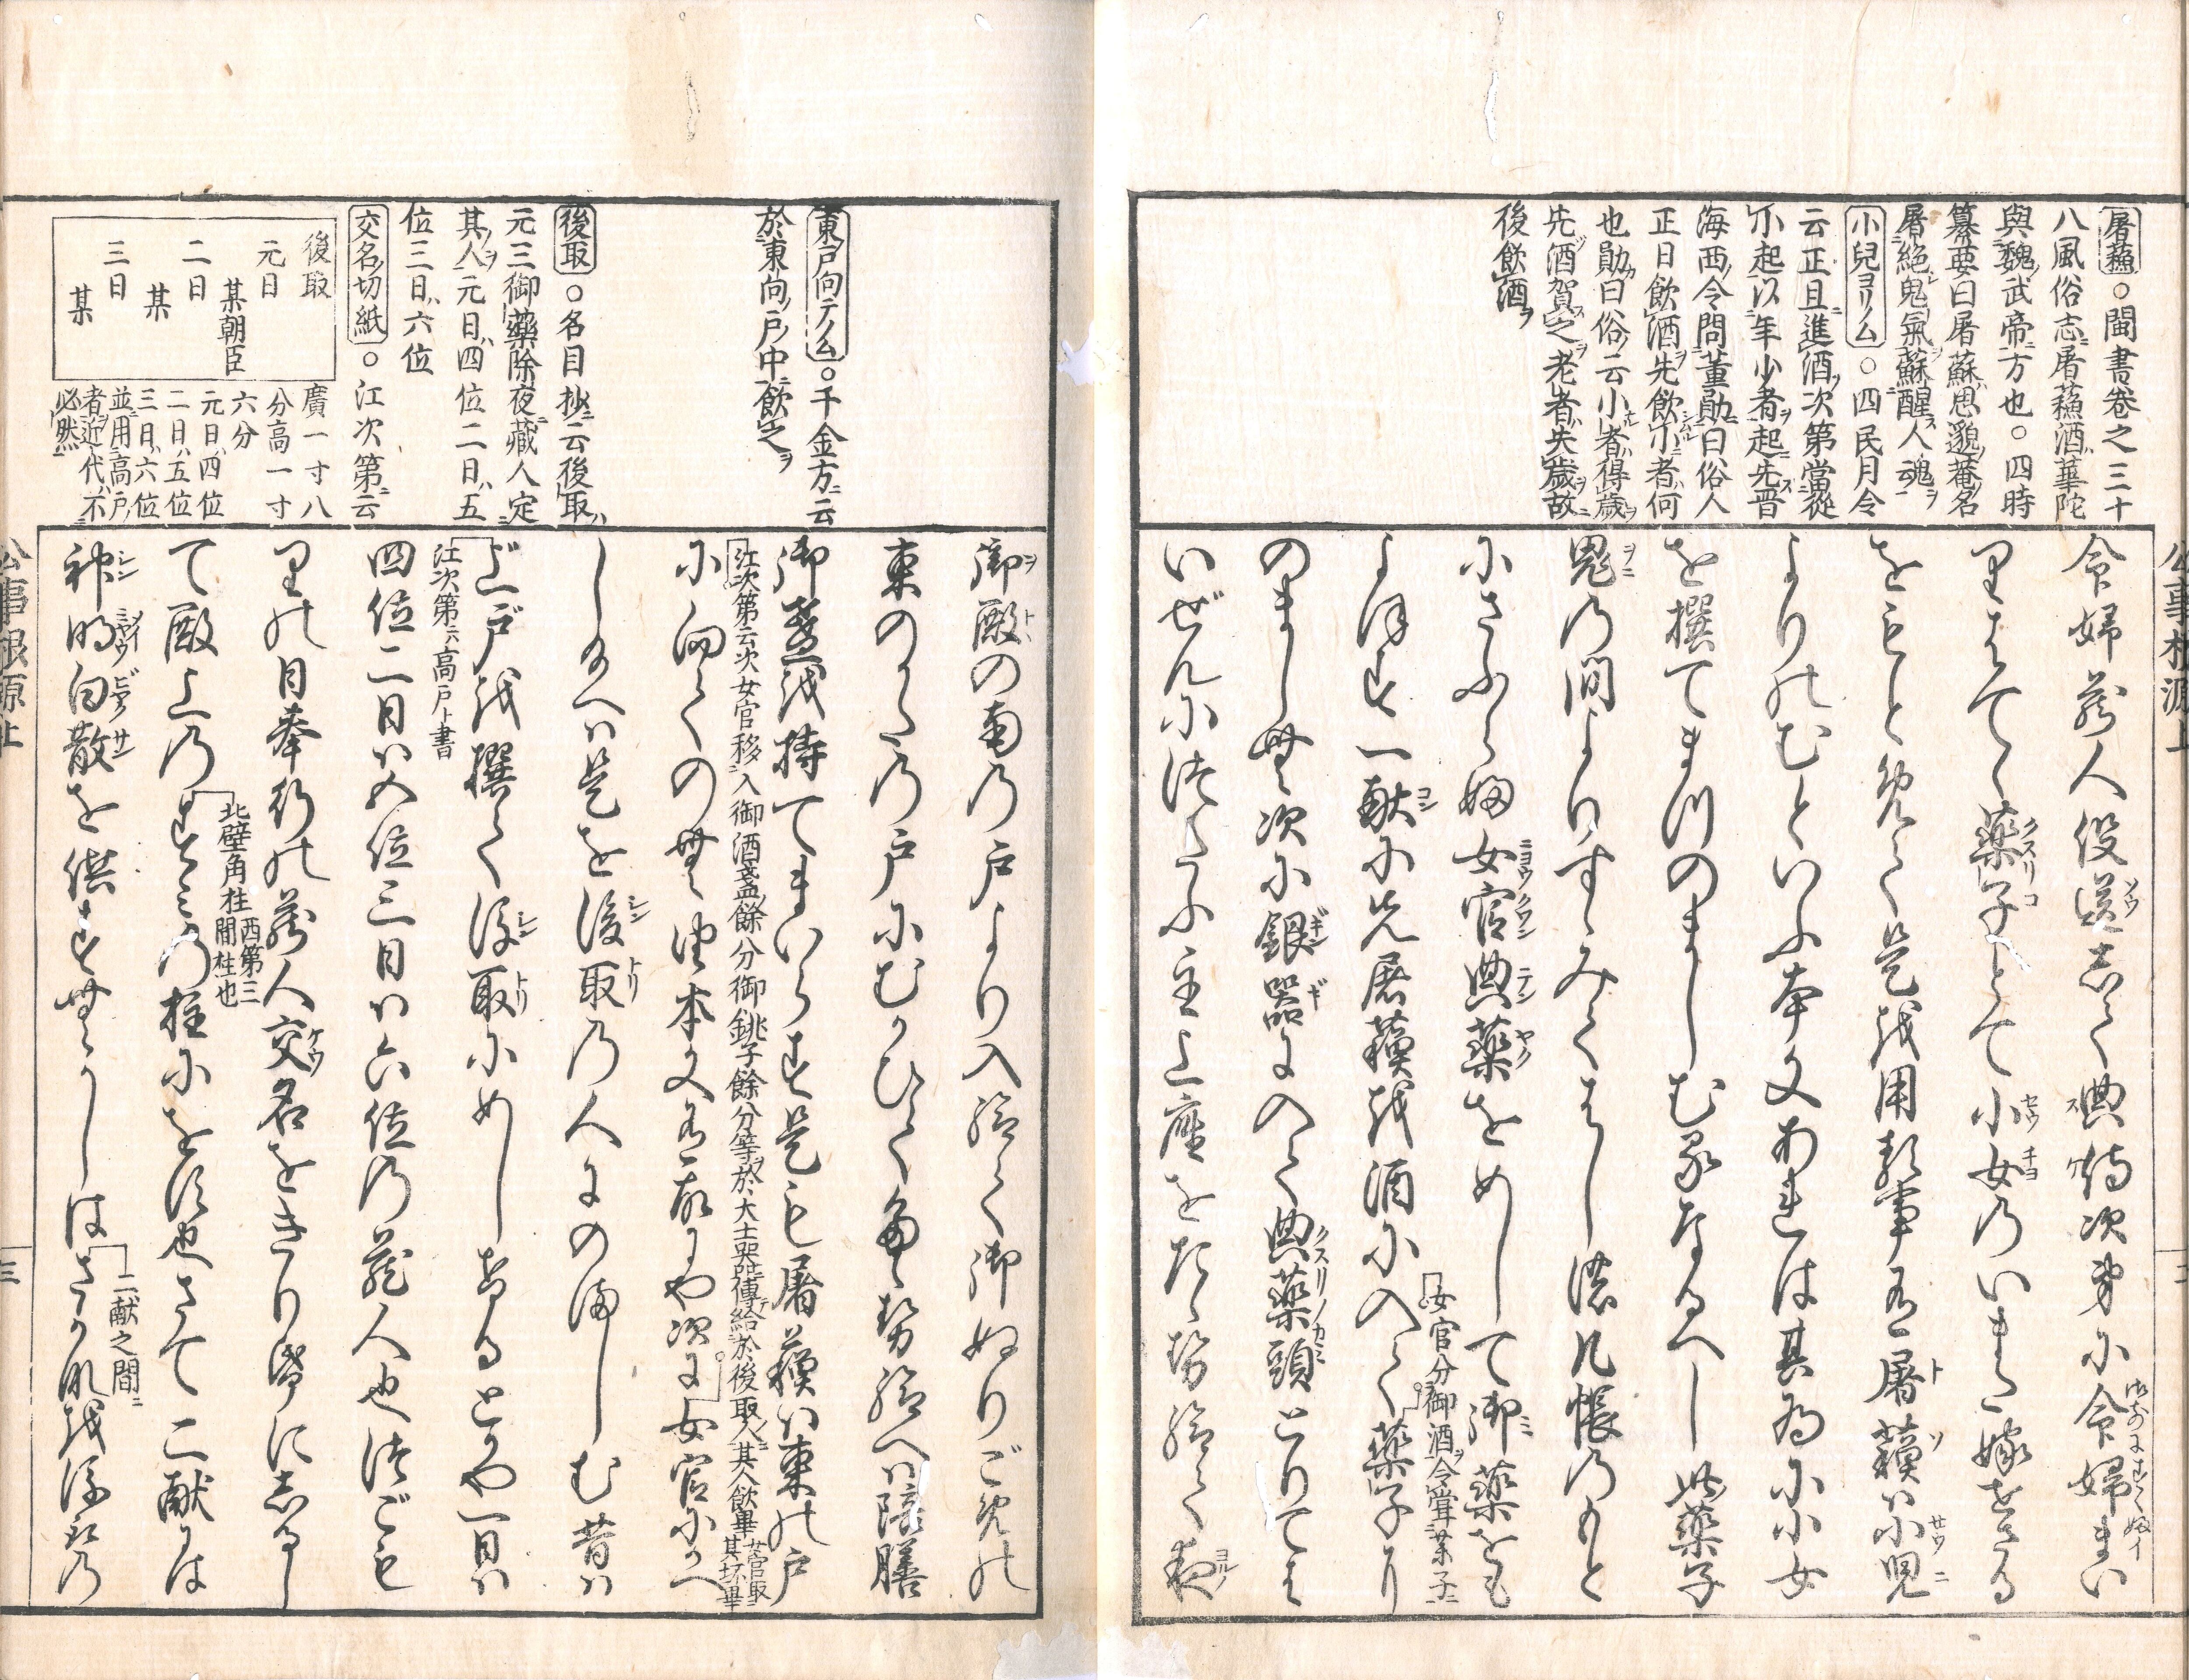 公事根源上
屠蘓○閩書卷之三十
八風俗志屠蘓酒華陀
與魏武帝方也○四時
纂要曰屠蘇思邈菴名
屠絕鬼氣蘇醒人魂
小兒ヨリノム○四民月令
云正旦進酒次第當從
小起以年少者起先晋
海西令問董勛曰俗人
正日飲酒先飲小者何
也勛曰俗云小者得歳
先酒賀之老者失歳故
後飲酒
令婦蔵人役送して典侍次第に令婦まい
りはてゝ薬子とて小女のいまた嫁せさる
をもとめて是を用る事有屠蘓ハ小児
よりのむといふ本文あれは其為に小女
を撰てまつのましむるなるへし此薬子
鬼の間よりすゝみてはし濃几帳のもと
にさふらふ女官典薬をめして御薬をも
よほす一献に先屠蘓を酒に入て薬子に
女官分御酒令甞薬子
のましむ次に銀器に入て典薬頭とりては
いせんにつたふ主上座をたゝせ給て夜
東戸向テノム○千金方云
於東向戸中飲之
後取○名目抄云後取
元三御藥除夜藏人定
其人元日四位二日五
位三日六位
交名切紙○江次第云
後取
元日
某朝臣
二日
某
三日
某
廣一寸八
分高一寸
六分
元日四位
二日五位
三日六位
並用高戸
者近代不
必然
御殿の南の戸より入給て御ぬりこめの
東のかたの戸にむかひて立せ給へは陪膳
御盞を持てまいらす是も屠蘓ハ東の戸
江次第云次女官移入御酒盞餘分御銚子餘分等於大土器傳給於後取人其人飲畢女官取其坏畢
に向てのむと本文有故にや次に女官にかへ
しまへは是を後取の人にのましむ昔は
上戸を撰て後取にめしけるとかや一日は
江次第云高戸ト書
四位二日は五位三日は六位の蔵人也つこも
りの日奉行の蔵人交名をきり紙にしるし
て殿上の
北壁角柱西第三間柱也
すみの柱にをす也さて二献には
神明白散を供す
二献之間
公事根源上
三